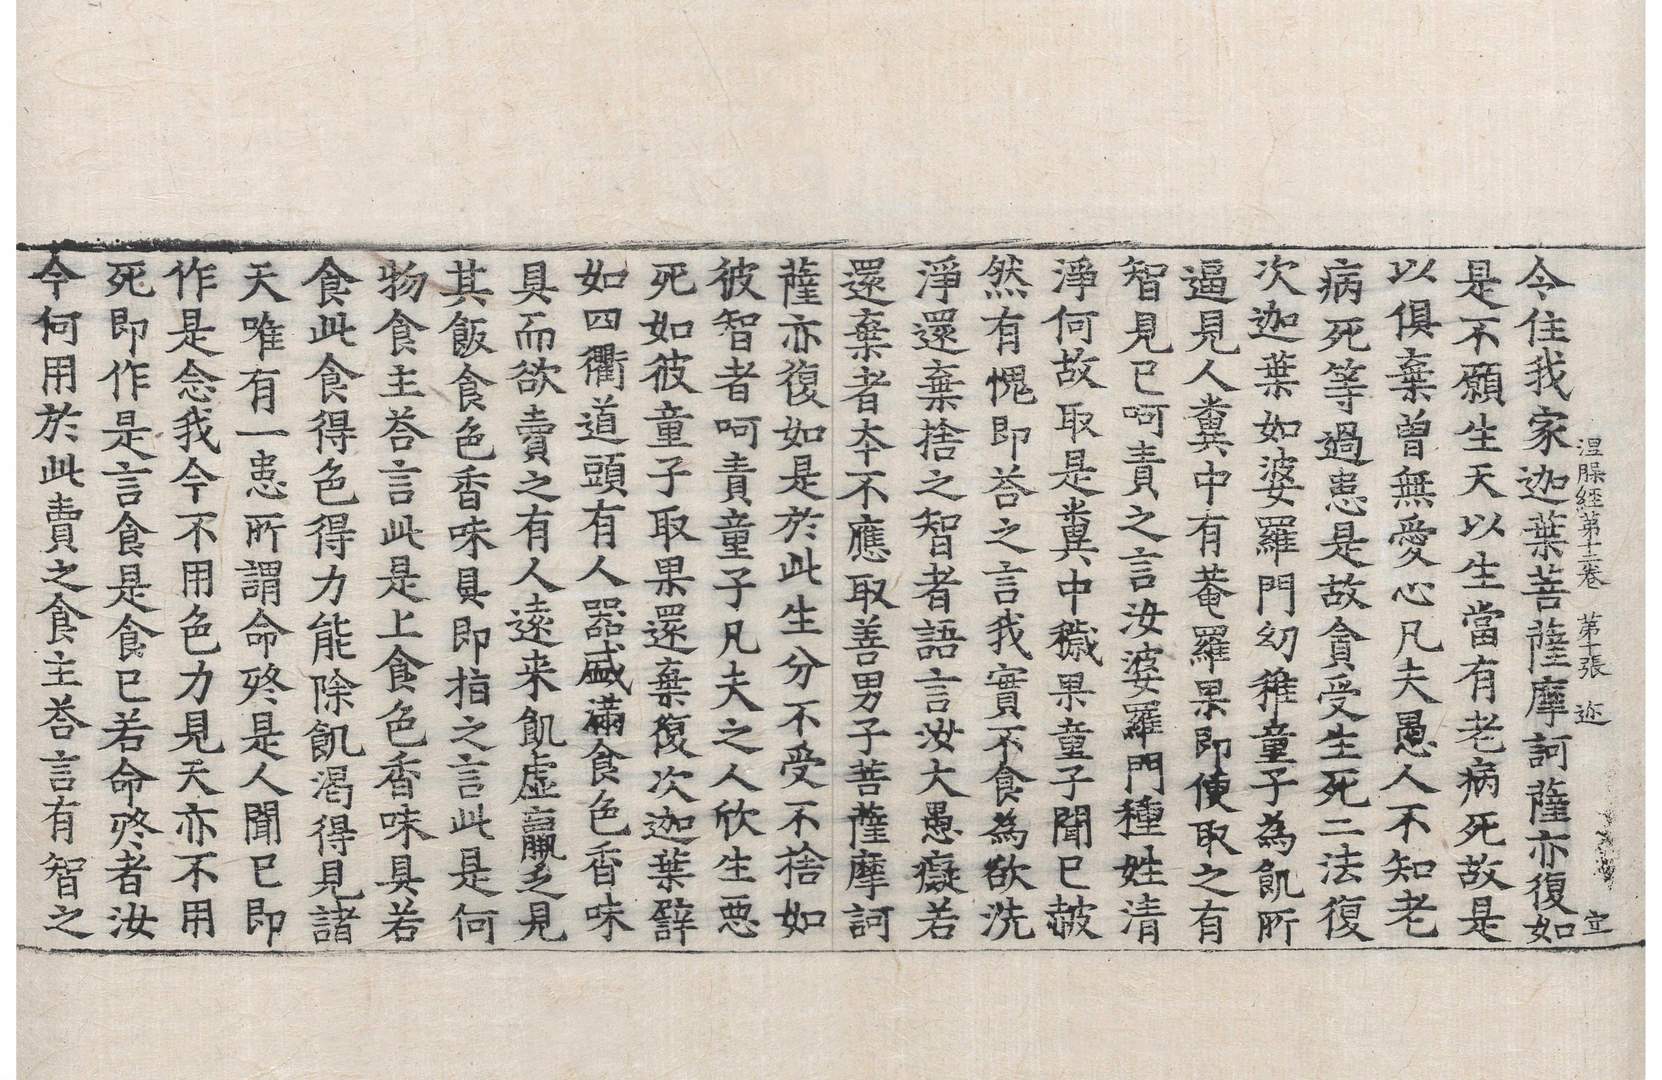 涅槃經第十二卷 第十張 迩 宜
今住我家迦葉菩薩摩訶薩亦復如
是不願生天以生當有老病死故是
以俱棄曾無愛心凡夫愚人不知老
病死等過患是故貪受生死二法復
次迦葉如婆羅門幼稚童子為飢所
逼見人糞中有菴羅果即便取之有
智見已呵責之言汝婆羅門種姓清
淨何故取是糞中穢果童子聞已赧
然有愧即荅之言我實不食為欲洗
淨還棄捨之智者語言汝大愚癡若
還棄者夲不應取善男子菩薩摩訶
薩亦復如是於此生分不受不捨如
彼智者呵責童子凡夫之人欣生惡
死如彼童子取果還棄復次迦葉譬
如四衢道頭有人器盛滿食色香味
具而欲賣之有人遠来飢虛羸乏見
其飯食色香味具即指之言此是何
物食主荅言此是上食色香味具若
食此食得色得力能除飢渴得見諸
天唯有一患所謂命終是人聞已即
作是念我今不用色力見天亦不用
死即作是言食是食已若命終者汝
今何用於此賣之食主荅言有智之